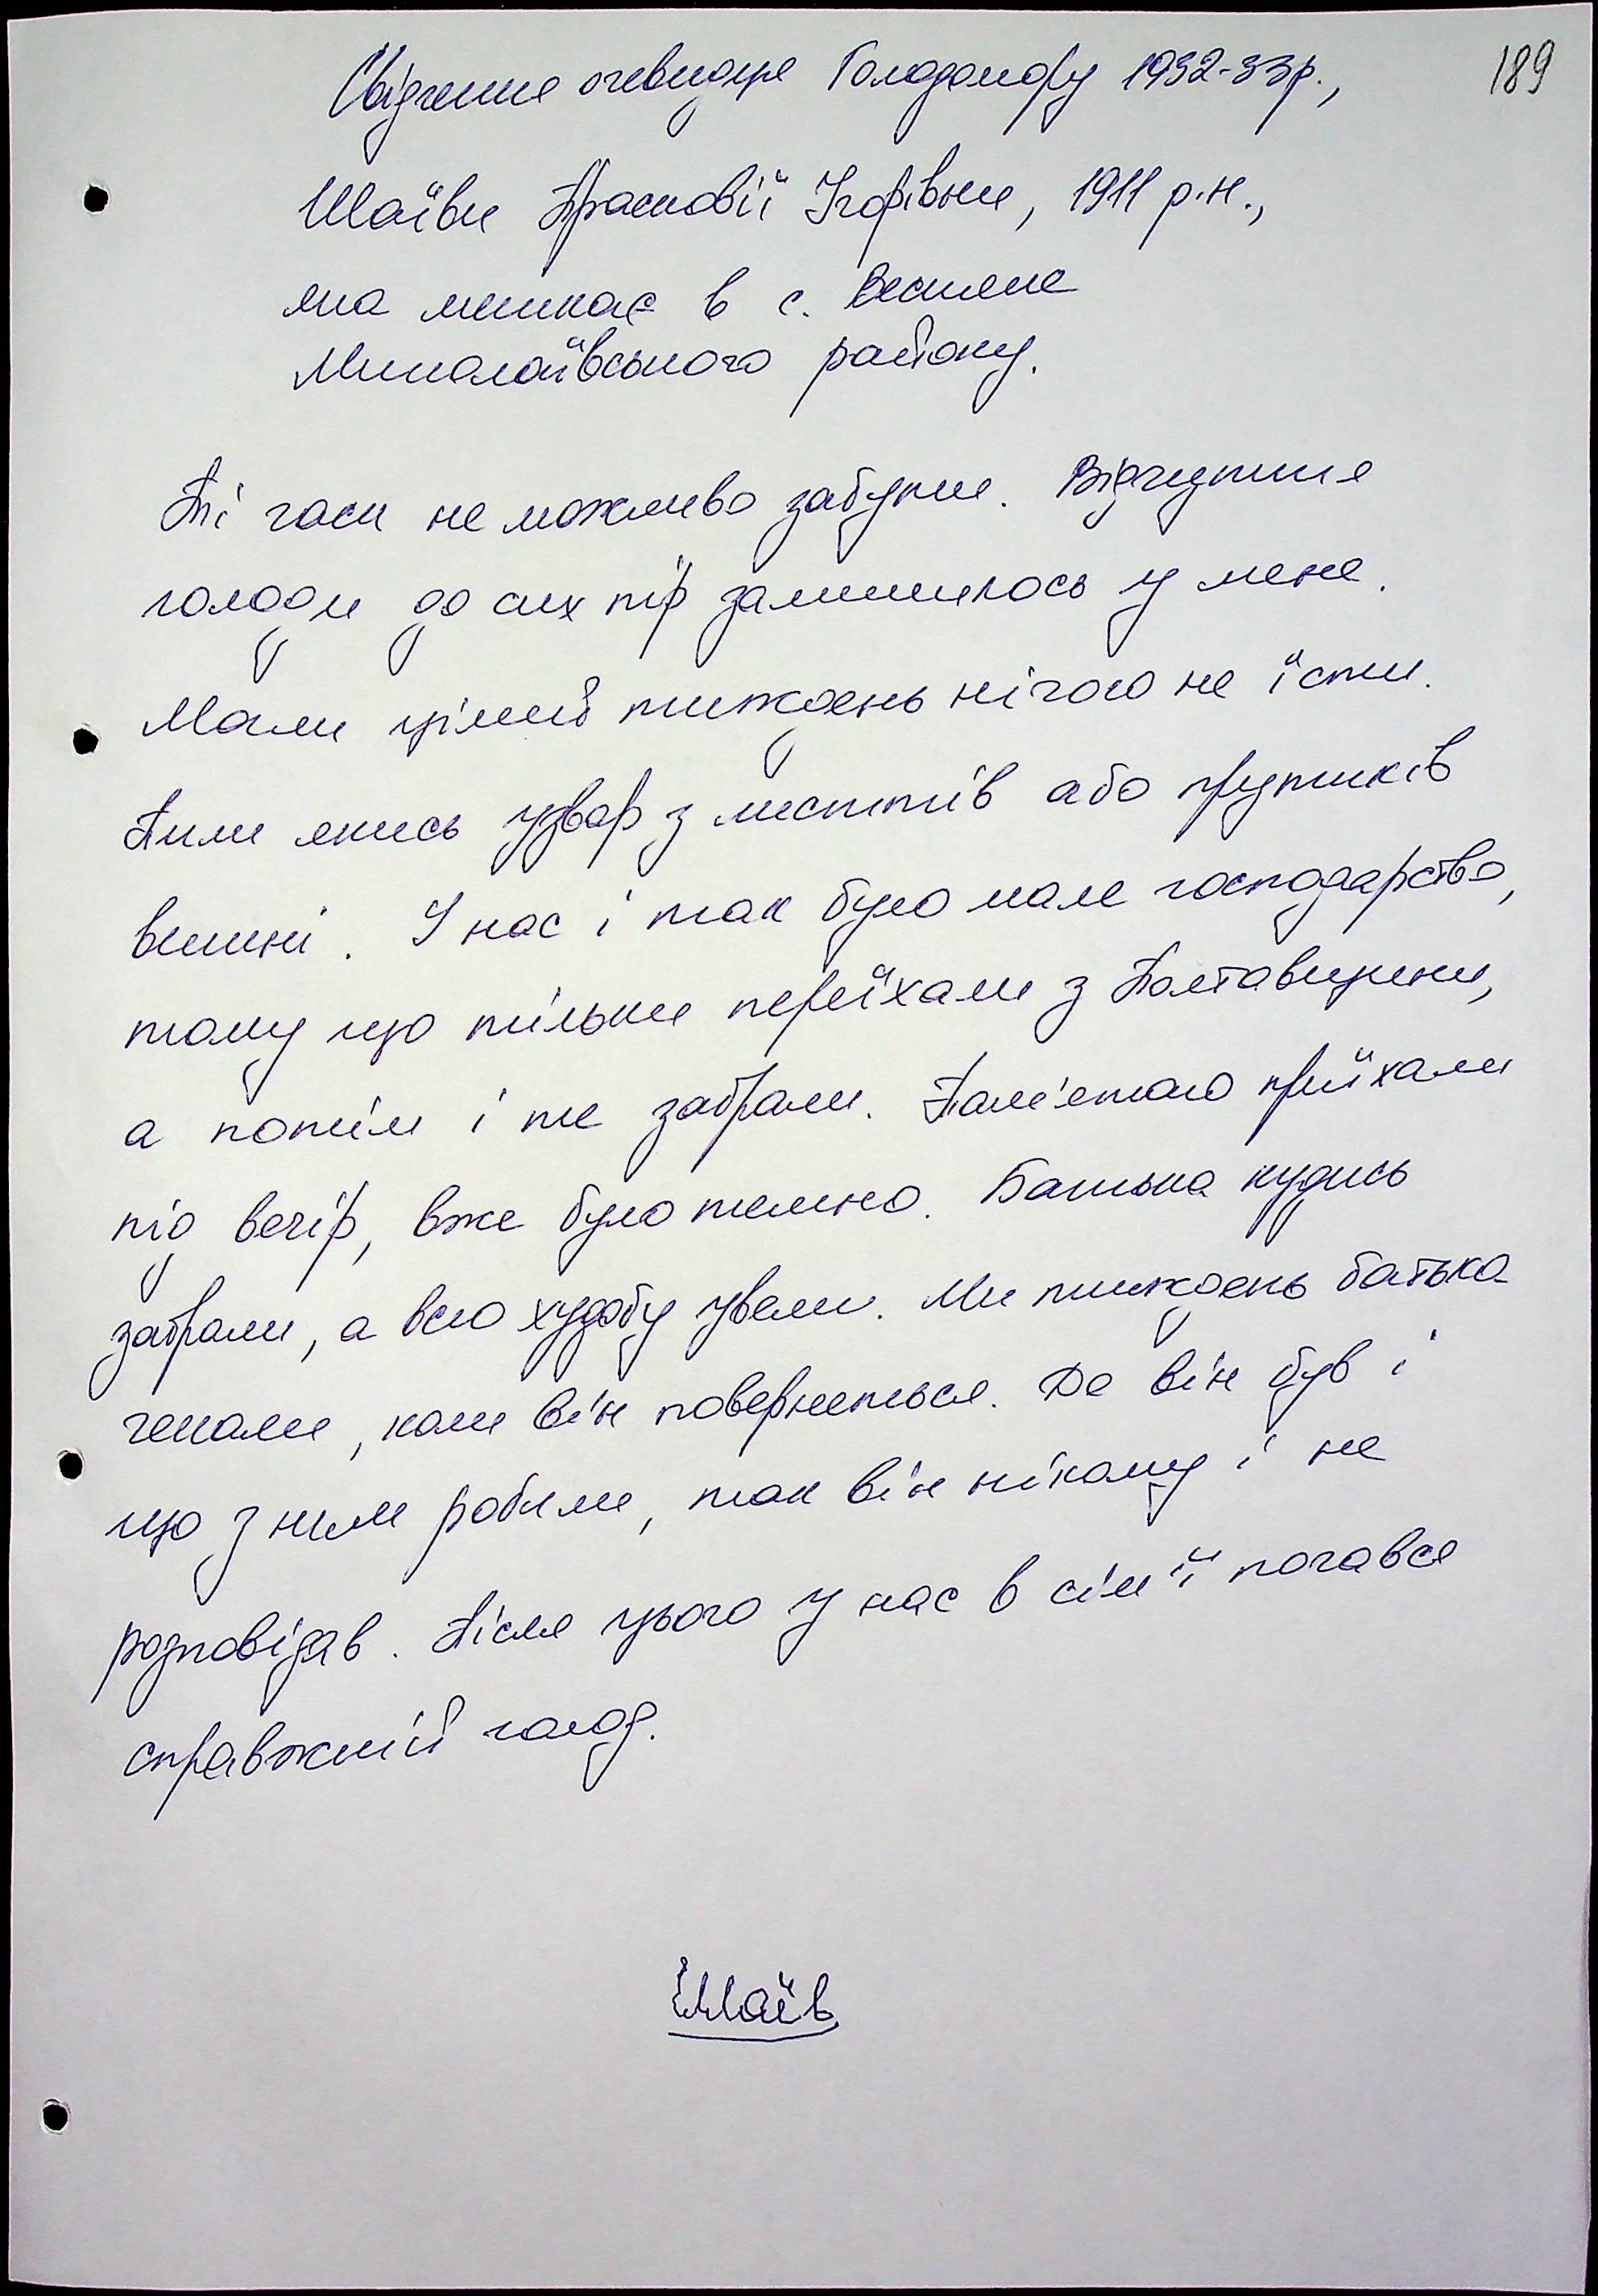 189
Свідчення очевидця Голодомору 1932-33р.,
Шаїви Прасковії Ігорівни, 1911 р.н.,
яка мешкає в с. Весняне
Миколаївського району.
Ті часи не можливо забути. Відчуття
голоду до сих пір залишилось у мене.
Могли цілий тиждень нічого не їсти.
Пили якись узвар з листтів або прутиків
вишні. У нас і так було мале господарство,
тому що тільки переїхали з Полтавщини,
а потім і те забрали. Пам'ятаю приїхали
під вечір, вже було темно. Батька кудись
забрали, а всю худобу увели. Ми тиждень батька
чекали, коли він повернеться. Де він був і
що з ним робили, так він нікому і не
розповідав. Після цього у нас в сім'ї почався
справжній голод.
Шаїв